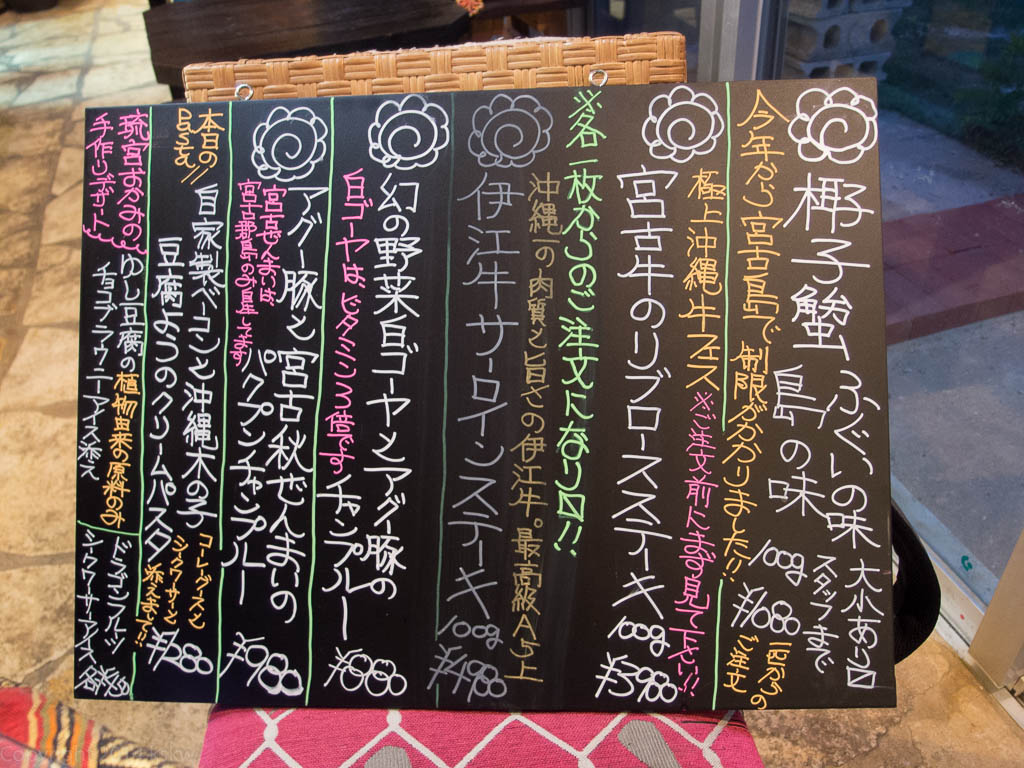 椰子蟹 島の味 ふぐいの味 大小あり〼
スタッフまで
100g ¥1680 一匹からのご注文
今年から宮古島で制限がかかりました!!
極上沖縄牛フェス ※ご注文前にまず見て下さい!!
宮古牛のリブロースステーキ 100g ¥3980
※各一枚からのご注文になり〼!!
沖縄一の肉質と旨さの伊江牛。最高級A5上
伊江牛サーロインステーキ 100g ¥4980
幻の野菜白ゴーヤとアグー豚の
チャンプルー ¥880
白ゴーヤは、ビタミンC3倍です
アグー豚と宮古秋ぜんまいの
パクプマンチャンプルー ¥980
宮古ぜんまいは、
宮古群島のみ自生してます
本日の
PASTA!!
自家製ベーコンと沖縄木の子
豆腐ようのクリームパスタ ¥1280
コーレーグスと
シークワーサーと
添えまして!!
琉宮おかみの
手作りデザート
ゆし豆腐の植物由来の原料のみ
チョコブラウニーアイス添え
ドラゴンフルーツ
シークワーサーアイス 各